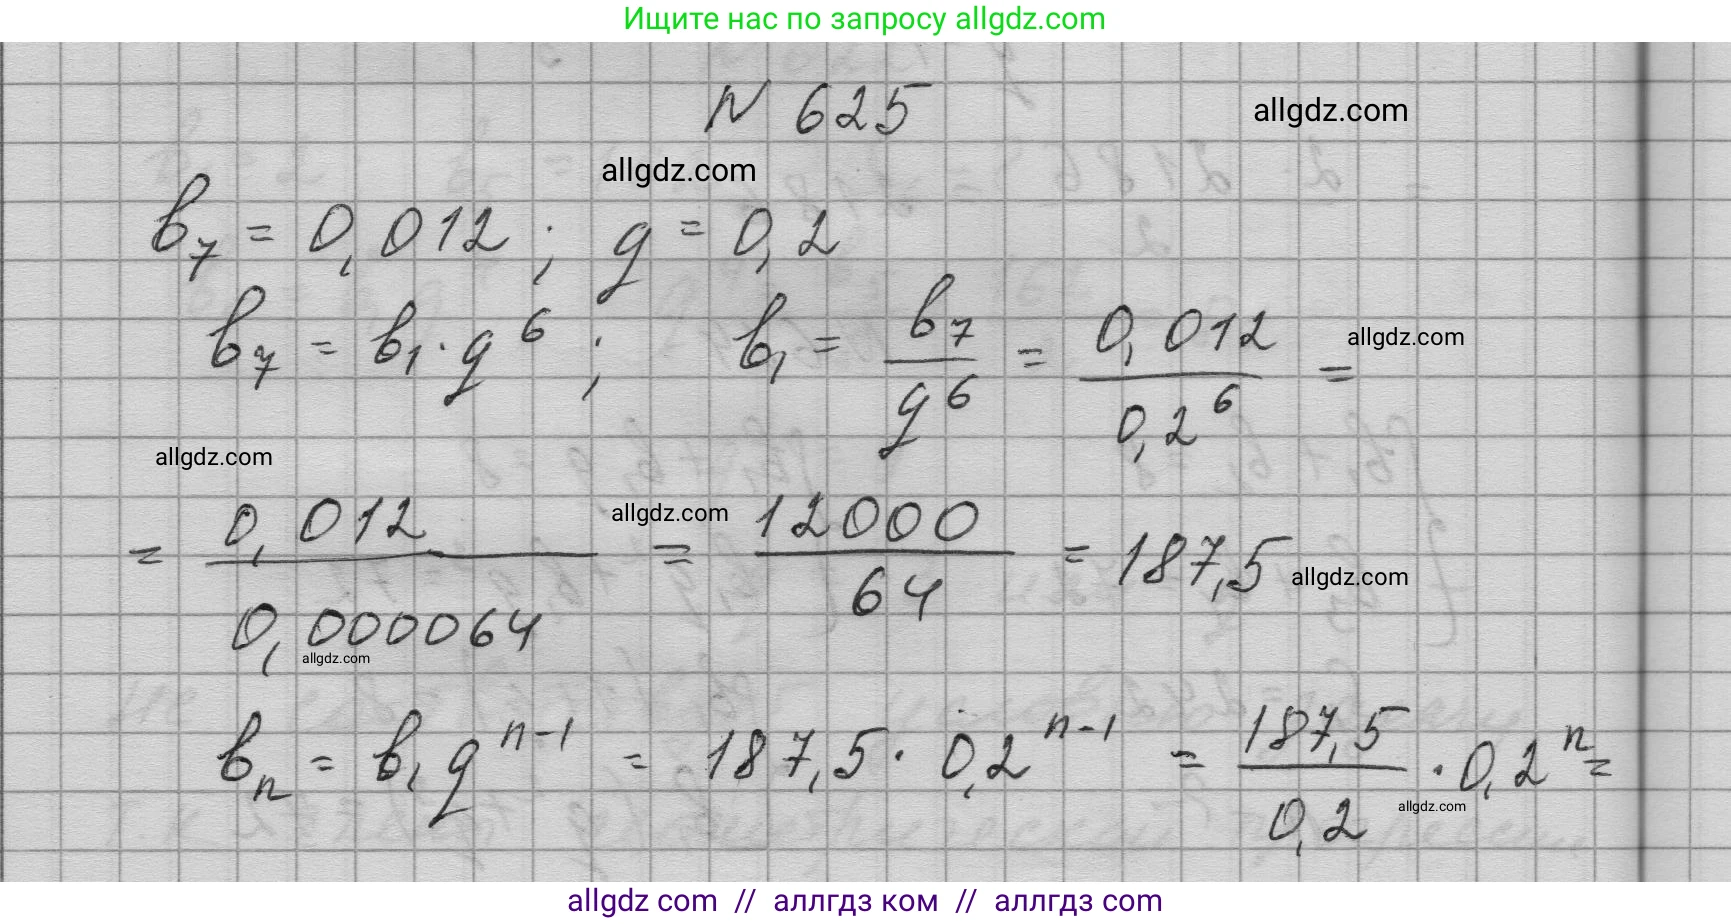 Ищите нас по запросу allgdz.com
N 625
allgdz.com
allgdz.com
b₇ = 0,012 ; q = 0,2
b₇ = b₁ · q⁶ ; b₁ = b₇/q⁶ = 0,012/0,2⁶ =
allgdz.com
allgdz.com
= 0,012/0,000064 = 12000/64 = 187,5
allgdz.com
allgdz.com
allgdz.com
bₙ = b₁qⁿ⁻¹ = 187,5 · 0,2ⁿ⁻¹ = 187,5/0,2 · 0,2ⁿ =
allgdz.com
allgdz com // аллгдз ком // аллгдз com